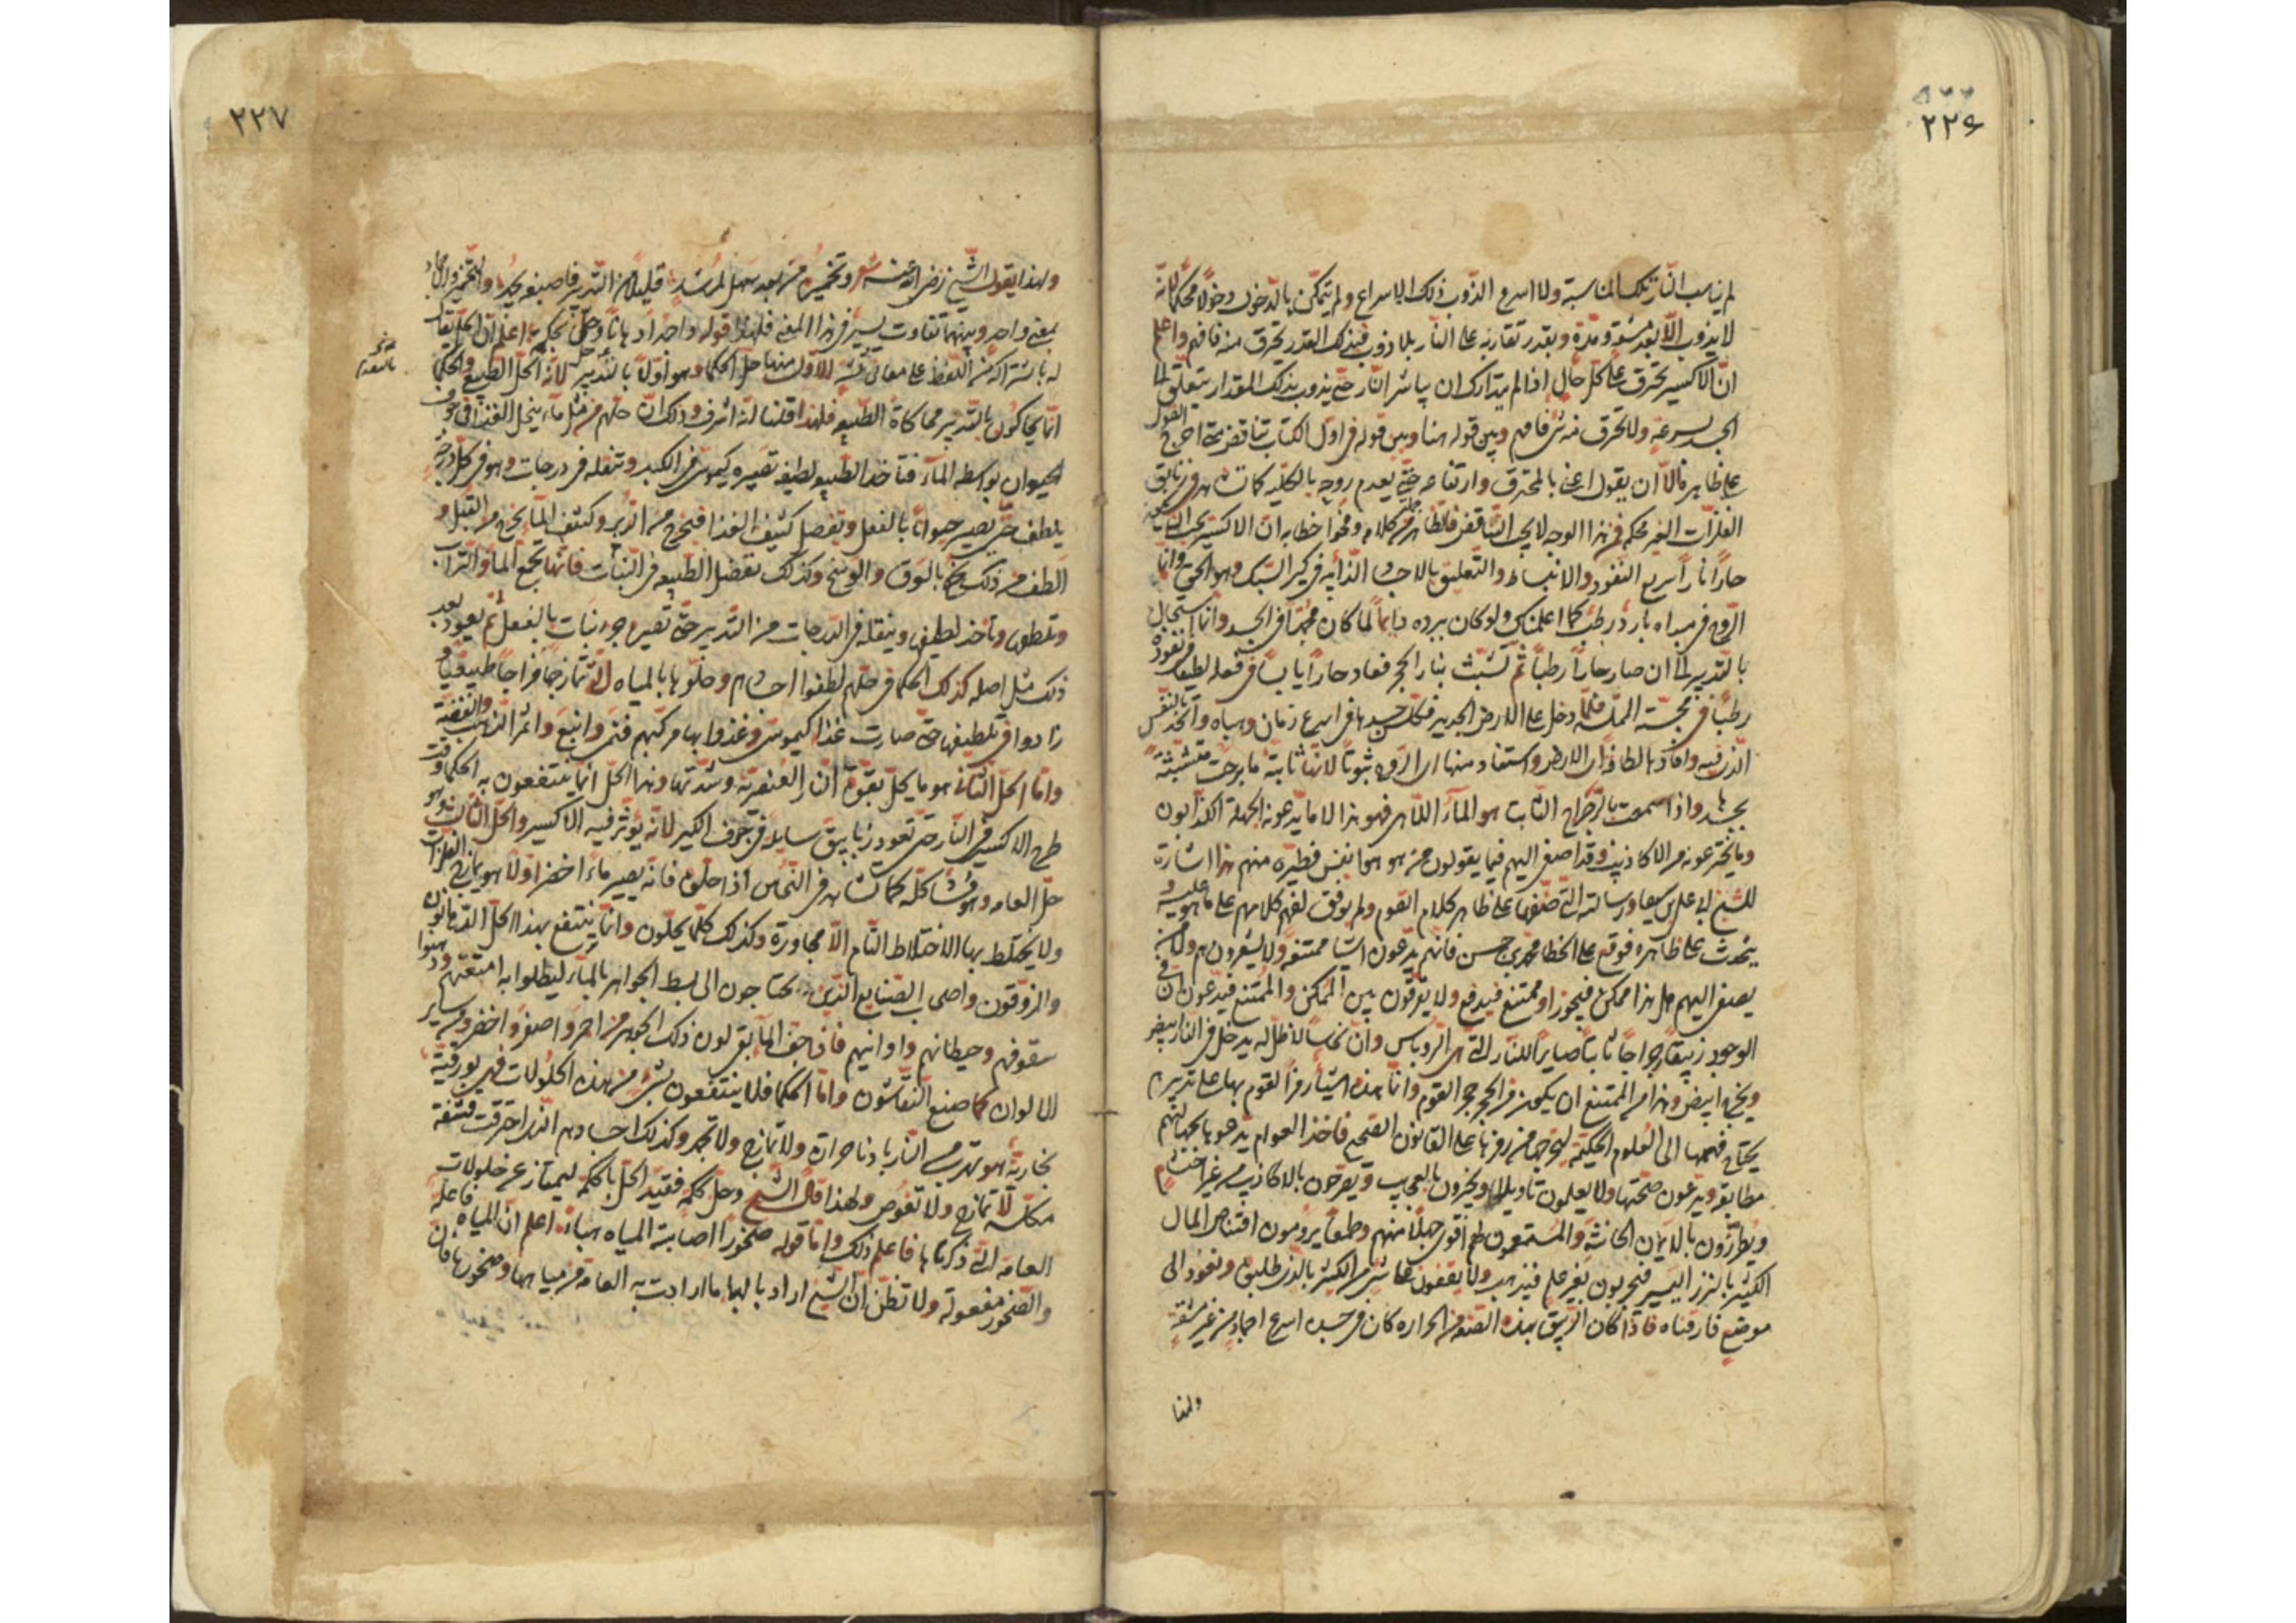 ٢٢٦
لم يناسب النار تلك المناسبة ولا اسرع الذوب ذلك الاسراع ولم يتمكن بالدخول دخولا محكما لانه
لا يذوب الا بعد مشقة ومدة وبقدر تقاربه على النار بلا ذوب فبذلك القدر يحترق منه فافهم واعلم
ان الاكسير يحترق على كل حال اذا لم يتدارك ان يباشر النار حتى يذوب بذلك المقدار يتعلق
الجسد بسرعة ولا يحترق منه شئ فافهم وبين قوله هنا وبين قوله في اول الكتاب تناقض متى اخرج القول
على ظاهره فالا ان يقول اعني بالمحترق وارتفاعه حتى يعدم روحه بالكلية كما تشاهد في زئابق
الفلزات الغير محكمة فمن هذا الوجه لا يجب التناقض فالظاهر من كلامه وفحوا خطابه ان الاكسير
حارا نارا سريع النفوذ والانبساط والتعليق بالاجساد الذائبة في كير السبك وهو الحق وانما
الروح في مبداه بارد رطب كما اعلمتك ولو كان برده دايما لما كان في الجسد وانما استحال
بالتدبير الى ان صار حارا رطبا ثم تشبث بنار الحجر فعاد حارا يابسا في فعله لطيفا في نفوذه
رطبا في مجسته فلما دخل على الارض الجديدة فكلس جسدها في اسرع زمان وهباه واتحد بالنفس
الذي فيه وافادها لطافة اي الارض واستفاد منها اي الروح ثبوتا لانها ثابتة ما برحت متشبثة
بجسدها واذا سمعت بالزجراج الثابت هو الماء الالهي فهو هذا لا ما يدعونه الجهلة الكذابون
وما يخترعونه من الاكاذيب وقد اصغى اليهم فيما يقولون من هو هو انفس فطيرة منهم هذا اشارة
للشيخ ابو علي بن سينا ورسالته التي صنفها على ظاهر كلام القوم ولم يوفق لفهم كلامهم على ما هو عليه و
يتحدث على ظاهره فوقع على الخطا محمد بن حسن فانهم يدعون اشيا ممتنعة ولا يشعرون هم ولا من
يصغي اليهم هل هذا ممكن فيجوز او ممتنع فيدفع ولا يفرقون بين الممكن والممتنع فيدعون ان في
الوجود زيبقا رجراجا ثابتا صابرا للنار التي هي الروباس وان نحاسا لا ظل له يدخل في النار ابيض
ويخرج ابيض وهذا من الممتنع ان يكون من الحجر حجر القوم وانما هذه اشيا رمز القوم بها على تدبيرهم
يحتاج فهمها الى العلوم الحكمية ليخرجها من رمزها على القانون الصحيح فاخذ العوام يدعوها بجهالتهم
مطابقة ويدعون صحتها ولا يعلمون تاويلها ويخبرون بالعجايب ويفرحون بالاكاذيب من غير احتشام
ويطرزون بالايمان الحانثة والمستمعون لهم اقوى جهلا منهم وطمعا يرومون اقتناص المال
الكثير بالنزر اليسير فيجربون بغير علم فيذهب ولا يقفون على شئ من الكثير بالذي طلبوه ونعود الى
موضع فارقناه فاذا كان الزيبق بهذه الصفة من الحرارة كان في جسده اسرع اجمادا من غير مشقة
ولهذا
٢٢٧
ولهذا يقول الشيخ رضي الله عنه شعر وتخميره من بعد سهل لمرشد قليلا من التدبير فاصبغه يجمد والتخمير والاجماد
بمعنى واحد وبينهما تفاوت يسير في هذا المعنى فلهذا قوله واحدا دهانا وحل بحكمة اعلم ان الحل يقال
له باشتراكه من اللفظ على معاني ثلثة الاول منها حل الحكما وهو اولا بالتدبير لانه الحل الطبيعي والحكما
انما يحاكون بالتدبير محاكاة الطبيعة فلهذا قلنا انه اشرف وذلك ان حلهم من مثل ما ينحل الغذا في جوف
الحيوان بواسطة الماء فتاخذ الطبيعة لطيفه تصيره كيموس في الكبد وتنقله في درجات وهو في كل درجة
يلطف حتى يصير حيوانا بالفعل وتفصل كثيف الغذا فيخرج من الدبر وكثيف الماء يخرج من القبل و
الطف من ذلك يخرج بالعرق والوسخ وكذلك تفضل الطبيعة في النبات فانها تجمع الماء والتراب
وتلطف وتاخذ لطيفها وينقله في الدرجات من التدبير حتى تصير جوهر نبات بالفعل ثم يعود بعد
ذلك مثل اصله كذلك الحكما في حلهم لطفوا اجسادهم وحلوها بالمياه التي تمازجها مزاجا طبيعيا و
زادوا في تلطيفها حتى صارت غذا كيموسي وغذوا بها مركبهم فنمى وانبع واثمر الذهب والفضة
واما الحل الثاني هو ما يحل بقوة النار العنصرية وشدتها وهذا الحل انما ينتفعون به الحكما وقت
طرح الاكسير في النار حتى تعود زئابيق سايلا في جوف الكير لانه يؤثر فيه الاكسير والحل الثالث وهو
حل العامة وهو مشاكله كما تشاهد في النحاس اذا حلوه فانه يصير ماء اخضرا ولا هو يمازج الفلزات
ولا يختلط بها الاختلاط التام الا مجاورة وكذلك كلما يحلون وانما ينتفع بهذا الحل الدهانون
والزوقون واصحاب الصنايع الذين يحتاجون الى بسط الجواهر بالماء ليطلوا به امتعتهم ودهنوا
سقوفهم وحيطانهم واوانيهم فاذا جف الماء بقي لون ذلك الجوهر من احمر واصفر واخضر ومن ساير
الالوان كما صنع النقاشون واما الحكما فلا ينتفعون بشئ من هذه الحلولات فهي بورقية
بخارية هو تهرب من النار بادنا حرارة ولا تمازج ولا تجمد وكذلك اجسادهم الذي احترقت منتفة
مكلسة لا تمازج ولا تغوص ولهذا قال الشيخ وحل بحكمة فقيد الحل بالحكمة ليمتاز عن حلولات
العامة التي ذكرناها فاعلم ذلك واما قوله صخورا اصابته المياه هباء اعلم ان المياه فاعلة
والصخور مفعولة ولا تظن ان الشيخ اراد بالهبا ما ارادت به العامة من مياهها وصخورها فان